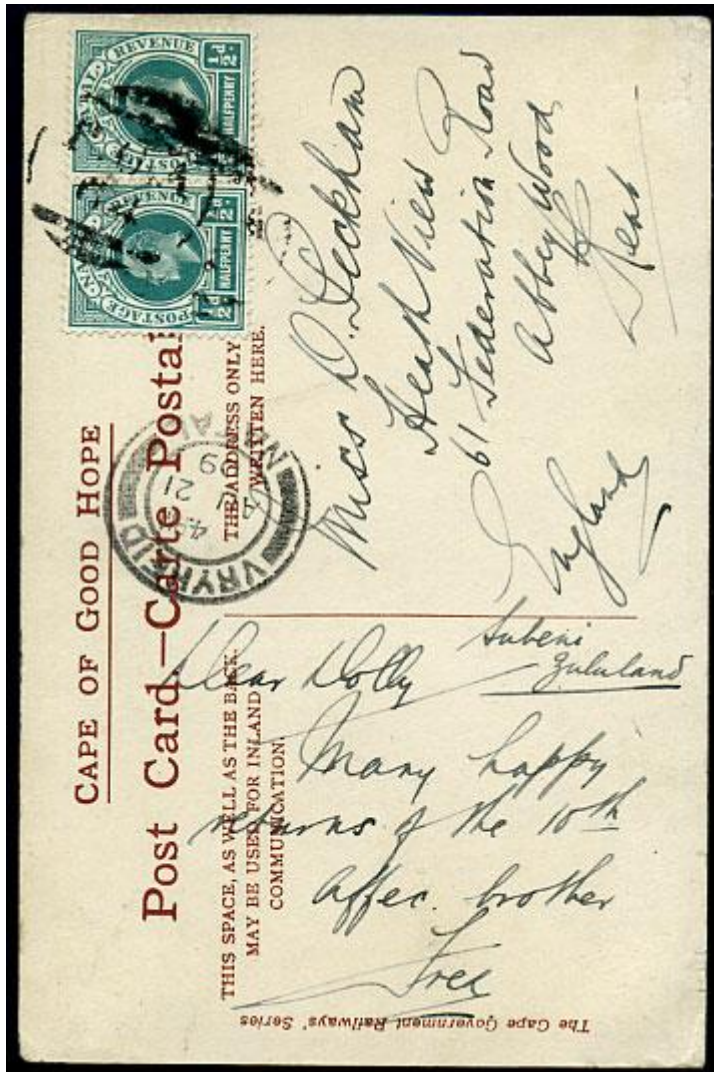 CAPE OF GOOD HOPE
Post Card—Carte Postal
THIS SPACE, AS WELL AS THE BACK,
MAY BE USED FOR INLAND
COMMUNICATION.
THE ADDRESS ONLY
WRITTEN HERE.
POSTAGE REVENUE
½d. HALFPENNY
POSTAGE REVENUE
½d. HALFPENNY
VRYHEID
AU 21
09
NATAL
Miss D. Peckham
Heath View
61 Federation Road
Abbey Wood
Kent
England
Zululand
Dear Dolly
Many happy
returns of the 10th
Affec. brother
Fred
The Cape Government Railways' Series